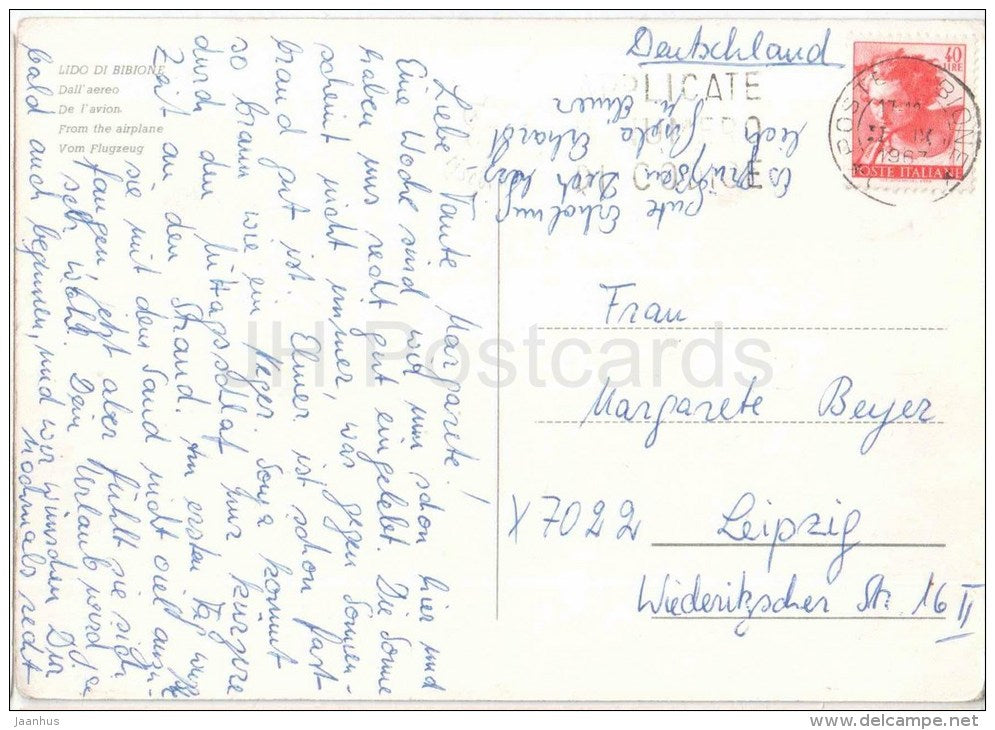 LIDO DI BIBIONE
Dall'aereo
De l'avion
From the airplane
Vom Flugzeug
Liebe Tante Margarete!
Eine Woche sind wir nun schon hier und
haben uns recht gut eingelebt. Die Sonne
scheint nicht immer, was gegen Sonnen-
brand gut ist. Elmer ist schon fast
so braun wie ein Neger. Sonja kommt
durch den Mittagsschlaf nur kürzere
Zeit an den Strand. Am ersten Tag wußte
sie mit dem Sand nicht viel anzu-
fangen, jetzt aber fühlt sie sich
sehr wohl. Dein Urlaub wird ja
bald auch beginnen, und wir wünschen Dir
nochmals recht
gute Erholung
Es grüßen Dich herz
lich Gisela Erhardt
u. Elmer
Deutschland
40
LIRE
POSTE ITALIANE
POSTE BIBIONE
IX
1967
APPLICATE
NUMERO
CODICE
Frau
Margarete Beyer
X 7022 Leipzig
Wiederitzscher Str. 16 II
JH Postcards
jaanhus
www.delcampe.net